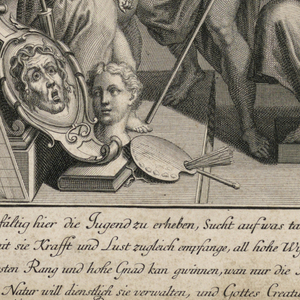 fältig hier die Jugend zu erheben, Sucht auf was ta
it sie Krafft und Lust zugleich empfange, all hohe W
sten Rang und hohe Gnad kan gewinnen, wan nur die
Natur will dienstlich sie verwalten, und Gottes Creat